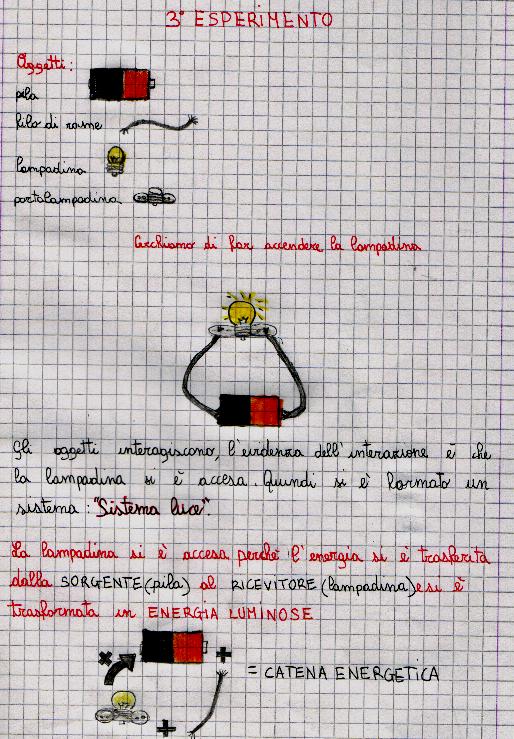 3° ESPERIMENTO
Oggetti:
pila
filo di rame
lampadina
portalampadina
Cerchiamo di far accendere la lampadina
Gli oggetti interagiscono, l'evidenza dell'interazione è che
la lampadina si è accesa. Quindi si è formato un
sistema: "Sistema luce"
La lampadina si è accesa perché l'energia si è trasferita
dalla SORGENTE (pila) al RICEVITORE (lampadina) e si è
trasformata in ENERGIA LUMINOSE
+
= CATENA ENERGETICA
+